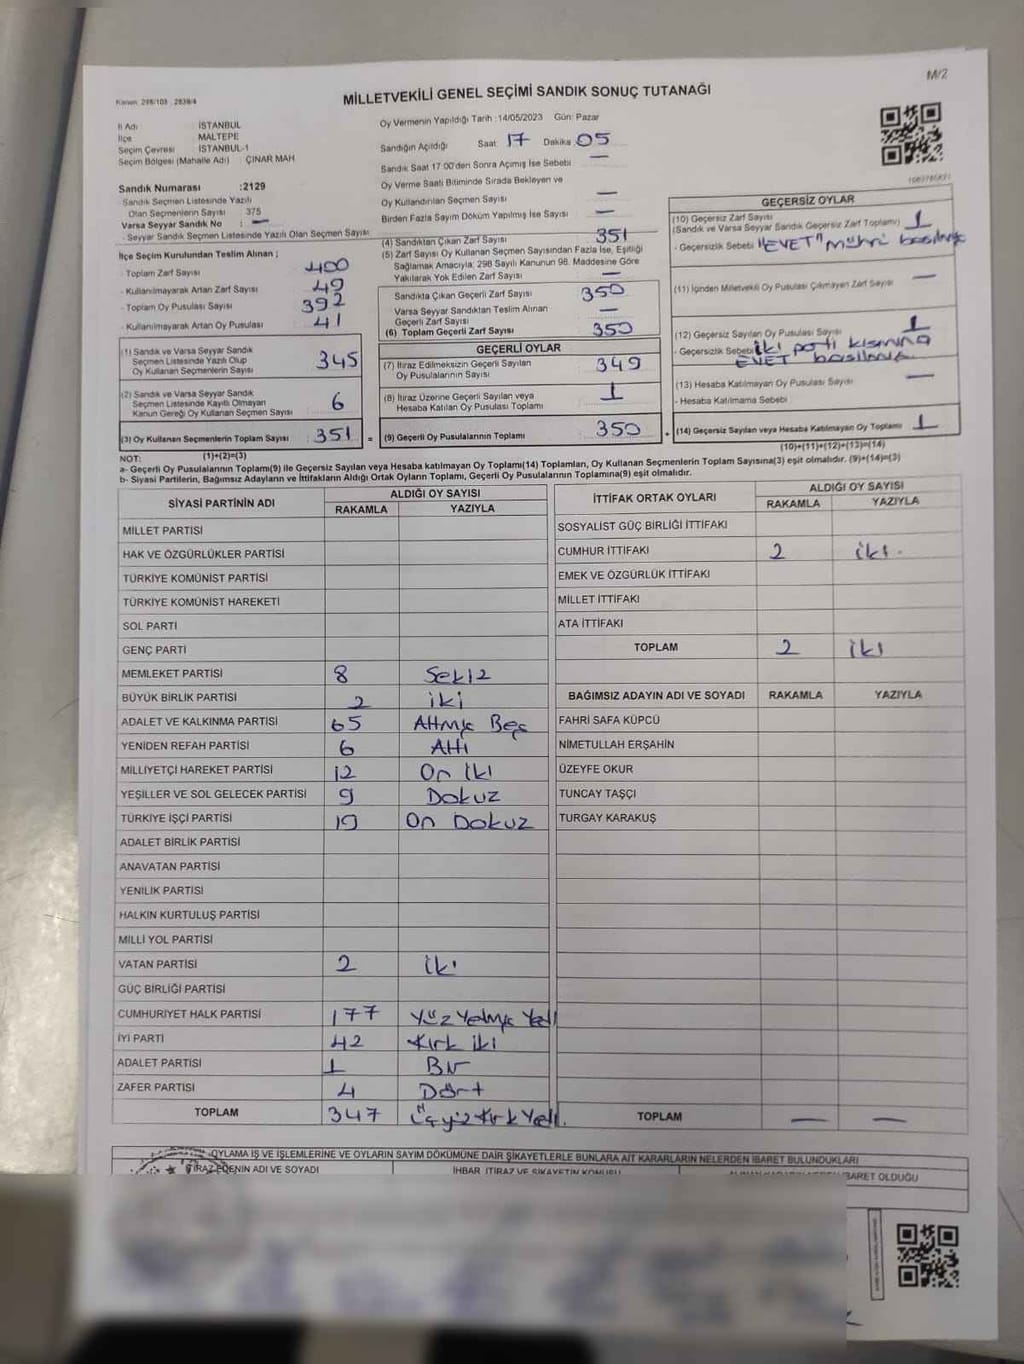 M/2
Kanun: 298/103 , 2839/4
MİLLETVEKİLİ GENEL SEÇİMİ SANDIK SONUÇ TUTANAĞI
İl Adı : İSTANBUL
İlçe : MALTEPE
Seçim Çevresi : İSTANBUL-1
Seçim Bölgesi (Mahalle Adı) : ÇINAR MAH
Sandık Numarası :2129
- Sandık Seçmen Listesinde Yazılı
Olan Seçmenlerin Sayısı : 375
Varsa Seyyar Sandık No : —
- Seyyar Sandık Seçmen Listesinde Yazılı Olan Seçmen Sayısı
Oy Vermenin Yapıldığı Tarih :14/05/2023 Gün: Pazar
Sandığın Açıldığı Saat 17 Dakika 05
Sandık Saat 17:00'den Sonra Açımış İse Sebebi —
Oy Verme Saati Bitiminde Sırada Bekleyen ve
Oy Kullandırılan Seçmen Sayısı —
Birden Fazla Sayım Döküm Yapılmış İse Sayısı —
İlçe Seçim Kurulundan Teslim Alınan ;
- Toplam Zarf Sayısı 400
- Kullanılmayarak Artan Zarf Sayısı 49
- Toplam Oy Pusulası Sayısı 392
- Kullanılmayarak Artan Oy Pusulası 41
(1) Sandık ve Varsa Seyyar Sandık
Seçmen Listesinde Yazılı Olup
Oy Kullanan Seçmenlerin Sayısı 345
(2) Sandık ve Varsa Seyyar Sandık
Seçmen Listesinde Kayıtlı Olmayan
Kanun Gereği Oy Kullanan Seçmen Sayısı 6
(3) Oy Kullanan Seçmenlerin Toplam Sayısı 351 =
(4) Sandıktan Çıkan Zarf Sayısı 351
(5) Zarf Sayısı Oy Kullanan Seçmen Sayısından Fazla İse, Eşitliği
Sağlamak Amacıyla; 298 Sayılı Kanunun 98. Maddesine Göre
Yakılarak Yok Edilen Zarf Sayısı —
Sandıkta Çıkan Geçerli Zarf Sayısı 350
Varsa Seyyar Sandıktan Teslim Alınan
Geçerli Zarf Sayısı —
(6) Toplam Geçerli Zarf Sayısı 350
GEÇERLİ OYLAR
(7) İtiraz Edilmeksizin Geçerli Sayılan
Oy Pusulalarının Sayısı 349
(8) İtiraz Üzerine Geçerli Sayılan veya
Hesaba Katılan Oy Pusulası Toplamı 1
(9) Geçerli Oy Pusulalarının Toplamı 350 +
GEÇERSİZ OYLAR
(10) Geçersiz Zarf Sayısı
(Sandık ve Varsa Seyyar Sandık Geçersiz Zarf Toplamı) 1
- Geçersizlik Sebebi "EVET" mührü basılmış
(11) İçinden Milletvekili Oy Pusulası Çıkmayan Zarf Sayısı —
(12) Geçersiz Sayılan Oy Pusulası Sayısı 1
- Geçersizlik Sebebi İki parti kısmına
EVET basılmış
(13) Hesaba Katılmayan Oy Pusulası Sayısı —
- Hesaba Katılmama Sebebi
(14) Geçersiz Sayılan veya Hesaba Katılmayan Oy Toplamı 1
NOT: (1)+(2)=(3)
(10)+(11)+(12)+(13)=(14)
a- Geçerli Oy Pusulalarının Toplamı(9) ile Geçersiz Sayılan veya Hesaba katılmayan Oy Toplamı(14) Toplamları, Oy Kullanan Seçmenlerin Toplam Sayısına(3) eşit olmalıdır. (9)+(14)=(3)
b- Siyasi Partilerin, Bağımsız Adayların ve İttifakların Aldığı Ortak Oyların Toplamı, Geçerli Oy Pusulalarının Toplamına(9) eşit olmalıdır.
SİYASİ PARTİNİN ADI ALDIĞI OY SAYISI
RAKAMLA YAZIYLA
MİLLET PARTİSİ
HAK VE ÖZGÜRLÜKLER PARTİSİ
TÜRKİYE KOMÜNİST PARTİSİ
TÜRKİYE KOMÜNİST HAREKETİ
SOL PARTİ
GENÇ PARTİ
MEMLEKET PARTİSİ 8 Sekiz
BÜYÜK BİRLİK PARTİSİ 2 iki
ADALET VE KALKINMA PARTİSİ 65 Altmış Beş
YENİDEN REFAH PARTİSİ 6 Altı
MİLLİYETÇİ HAREKET PARTİSİ 12 On İki
YEŞİLLER VE SOL GELECEK PARTİSİ 9 Dokuz
TÜRKİYE İŞÇİ PARTİSİ 19 On Dokuz
ADALET BİRLİK PARTİSİ
ANAVATAN PARTİSİ
YENİLİK PARTİSİ
HALKIN KURTULUŞ PARTİSİ
MİLLİ YOL PARTİSİ
VATAN PARTİSİ 2 İki
GÜÇ BİRLİĞİ PARTİSİ
CUMHURİYET HALK PARTİSİ 177 Yüz Yetmiş Yedi
İYİ PARTİ 42 Kırk iki
ADALET PARTİSİ 1 Bir
ZAFER PARTİSİ 4 Dört
TOPLAM 347 Üçyüz Kırk Yedi.
İTTİFAK ORTAK OYLARI ALDIĞI OY SAYISI
RAKAMLA YAZIYLA
SOSYALİST GÜÇ BİRLİĞİ İTTİFAKI
CUMHUR İTTİFAKI 2 iki.
EMEK VE ÖZGÜRLÜK İTTİFAKI
MİLLET İTTİFAKI
ATA İTTİFAKI
TOPLAM 2 iki
BAĞIMSIZ ADAYIN ADI VE SOYADI RAKAMLA YAZIYLA
FAHRİ SAFA KÜPCÜ
NİMETULLAH ERŞAHİN
ÜZEYFE OKUR
TUNCAY TAŞÇI
TURGAY KARAKUŞ
TOPLAM — —
OYLAMA İŞ VE İŞLEMLERİNE VE OYLARIN SAYIM DÖKÜMÜNE DAİR ŞİKAYETLERLE BUNLARA AİT KARARLARIN NELERDEN İBARET BULUNDUKLARI
İTİRAZ EDENİN ADI VE SOYADI İHBAR, İTİRAZ VE ŞİKAYETİN KONUSU İBARET OLDUĞU